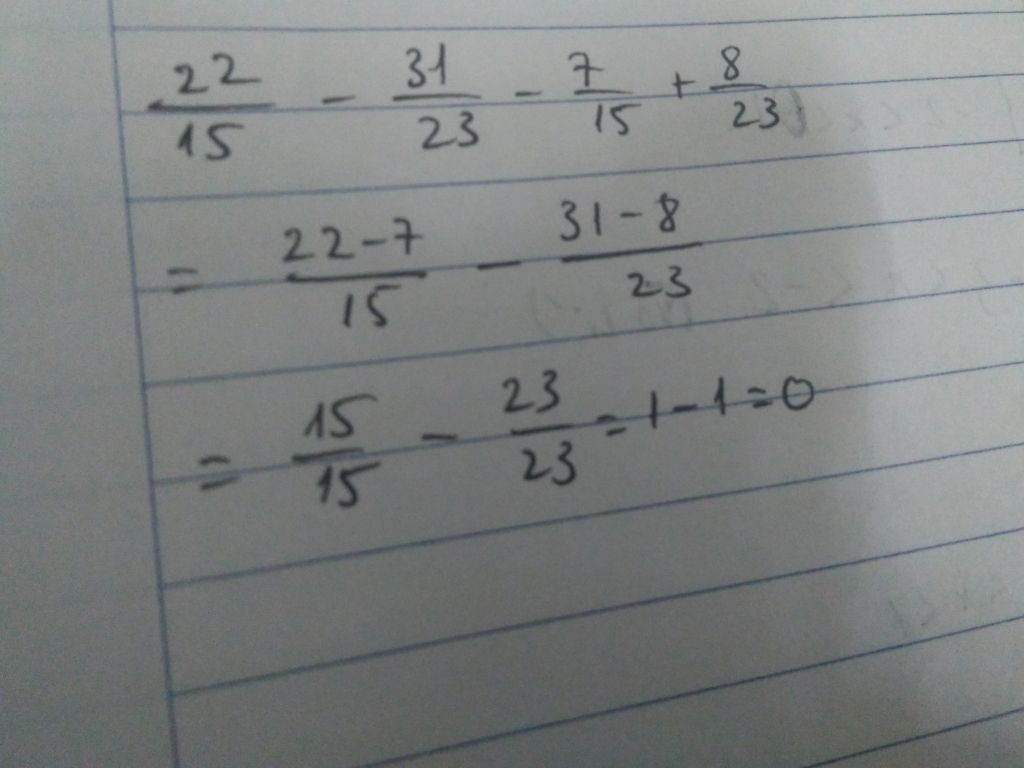 22/15 - 31/23 - 7/15 + 8/23
= 22-7/15 - 31-8/23
= 15/15 - 23/23 = 1-1=0